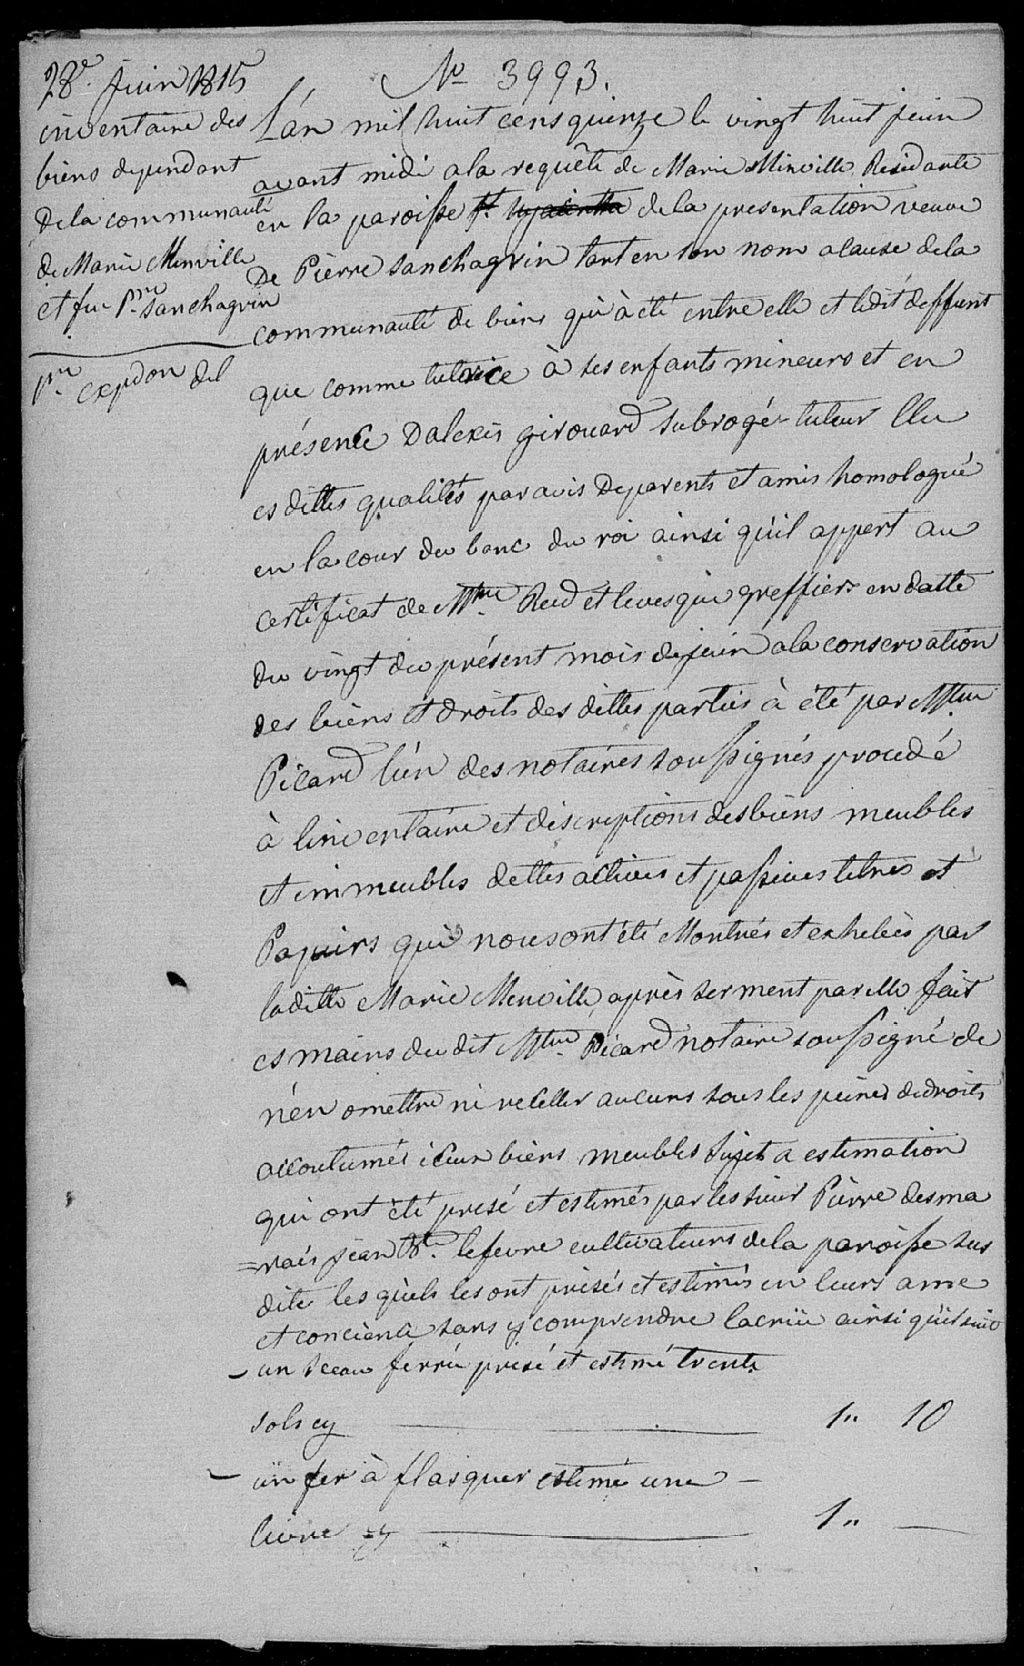 28e. juin 1815
inventaire des
biens dependant
De la communauté
de Marie Minville
et feu Prre Sanchagrin
Pre expdon del
No 3993.
L'an mil huit cens quinze le vingt huit juin
avant midi a la requête de Marie Minville Residante
en la paroisse St. hyacinthe de la presentation veuve
De Pierre Sanchagrin tant en son nom a cause de la
communauté de biens qui à été entre elle et ledit deffunt
que comme tutrice à ses enfants mineurs et en
présence D'alexis girouard Subrogé-tuteur Elu
es dittes qualités par avis De parents et amis homologué
en la cour du banc du roi ainsi quil appert au
certificat de Mtre Reid et levesque greffiers en datte
du vingt du présent mois de juin à la conservation
des biens et droits des dittes parties à été par Mtre
Picard l'un des notaires soussignés procedé
à linventaire et discriptions des biens meubles
et immeubles dettes actives et passives titres et
Papiers qui nous ont été Montrés et exhibés par
laditte Marie Menville après serment par elle fait
es mains du dit Mtre. Picard notaire soussigné de
n'en omettre ni receller aucuns sous les peines de droits
accoutumés iceux biens meubles Sujets a estimation
qui ont été prisé et estimés par les sieur Pierre desma
=rais jean Bte. lefevre cultivateurs de la paroisse sus
dite les quels les ont prisés et estimés en leurs ame
et concience sans y comprendre la criie ainsi quil suit
- un sceau ferré prisé et estimé trente
sols cy 1" 10
- un fer à flasquer estimé une -
livre cy 1" -